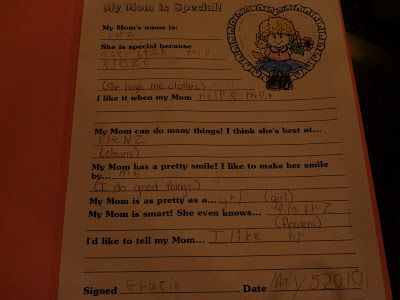 My Mom is Special!
My Mom's name is:
She is special because
me
(She buys me clothes)
I like it when my Mom helps me.
My Mom can do many things! I think she's best at...
klenz
(cleans)
My Mom has a pretty smile! I like to make her smile
by... me
(I do good things.)
My Mom is as pretty as a... grl (girl)
My Mom is smart! She even knows...
(flowers)
I'd like to tell my Mom... I like hr
Signed Gracie Date May 5 2010